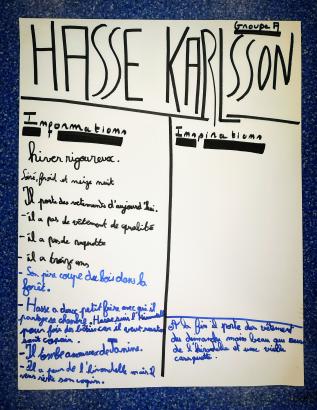 Groupe A
HASSE KARLSSON
Informations
hiver rigoureux.
froid et neige nuit
Il porte des vetements d'aujourd'hui.
- il a pas de vêtement de qualité
- il a pas de raquette
- il a treize ans
- Son père coupe du bois dans la
forêt.
- Hasse a deux petit frère avec qui il
partage sa chambre. Hasse suis l'Hirondelle
pour fois des bêtises car il veut
son copain.
- Il tombe amoureux de Janine.
- Il a peur de l'hirondelle mais il
reste son copain.
Inspirations
A la fin il porte des vêtement
du dimanche mais beau que ceux
de l'hirondelle et une vieille
casquette.